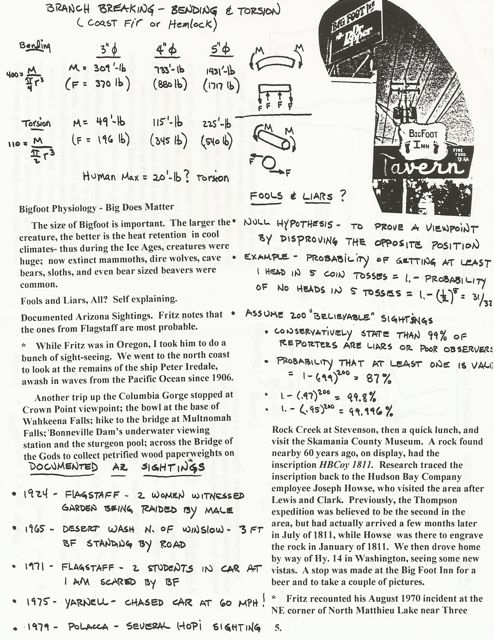 BRANCH BREAKING - BENDING & TORSION
(COAST FIR or HEMLOCK)
Bending 3"ϕ 4"ϕ 5"ϕ
400 = M / (π/4 r³) M = 309'-lb 733'-lb 1431'-lb
(F = 370 lb) (880 lb) (1717 lb)
Torsion M = 49'-lb 115'-lb 225'-lb
110 = M / (π/2 r³) (F = 196 lb) (345 lb) (540 lb)
HUMAN MAX = 20'-lb? TORSION
M M
F F F
M
F
BIG FOOT INN
BIGFOOT
INN
FINE
FOOD
Tavern
Bigfoot Physiology - Big Does Matter
The size of Bigfoot is important. The larger the
creature, the better is the heat retention in cool
climates- thus during the Ice Ages, creatures were
huge; now extinct mammoths, dire wolves, cave
bears, sloths, and even bear sized beavers were
common.
Fools and Liars, All? Self explaining.
Documented Arizona Sightings. Fritz notes that
the ones from Flagstaff are most probable.
* While Fritz was in Oregon, I took him to do a
bunch of sight-seeing. We went to the north coast
to look at the remains of the ship Peter Iredale,
awash in waves from the Pacific Ocean since 1906.
Another trip up the Columbia Gorge stopped at
Crown Point viewpoint; the bowl at the base of
Wahkeena Falls; hike to the bridge at Multnomah
Falls; Bonneville Dam's underwater viewing
station and the sturgeon pool; across the Bridge of
the Gods to collect petrified wood paperweights on
DOCUMENTED AZ SIGHTINGS
• 1924 - FLAGSTAFF - 2 WOMEN WITNESSED
GARDEN BEING RAIDED BY MALE
• 1965 - DESERT WASH N. OF WINSLOW - 3 FT
BF STANDING BY ROAD
• 1971 - FLAGSTAFF - 2 STUDENTS IN CAR AT
1 AM SCARED BY BF
• 1975 - YARNELL - CHASED CAR AT 60 MPH!
• 1979 - POLACCA - SEVERAL HOPI SIGHTING
FOOLS & LIARS ?
• NULL HYPOTHESIS - TO PROVE A VIEWPOINT
BY DISPROVING THE OPPOSITE POSITION
• EXAMPLE - PROBABILITY OF GETTING AT LEAST
1 HEAD IN 5 COIN TOSSES = 1. - PROBABILITY
OF NO HEADS IN 5 TOSSES = 1. - (½)⁵ = 31/32
• ASSUME 200 "BELIEVABLE" SIGHTINGS
• CONSERVATIVELY STATE THAN 99% OF
REPORTERS ARE LIARS OR POOR OBSERVERS
• PROBABILITY THAT AT LEAST ONE IS VALI
= 1 - (.99)²⁰⁰ = 87%
• 1 - (.97)²⁰⁰ = 99.8%
• 1. - (.95)²⁰⁰ = 99.996%
Rock Creek at Stevenson, then a quick lunch, and
visit the Skamania County Museum. A rock found
nearby 60 years ago, on display, had the
inscription HBCoy 1811. Research traced the
inscription back to the Hudson Bay Company
employee Joseph Howse, who visited the area after
Lewis and Clark. Previously, the Thompson
expedition was believed to be the second in the
area, but had actually arrived a few months later
in July of 1811, while Howse was there to engrave
the rock in January of 1811. We then drove home
by way of Hy. 14 in Washington, seeing some new
vistas. A stop was made at the Big Foot Inn for a
beer and to take a couple of pictures.
* Fritz recounted his August 1970 incident at the
NE corner of North Matthieu Lake near Three
5.